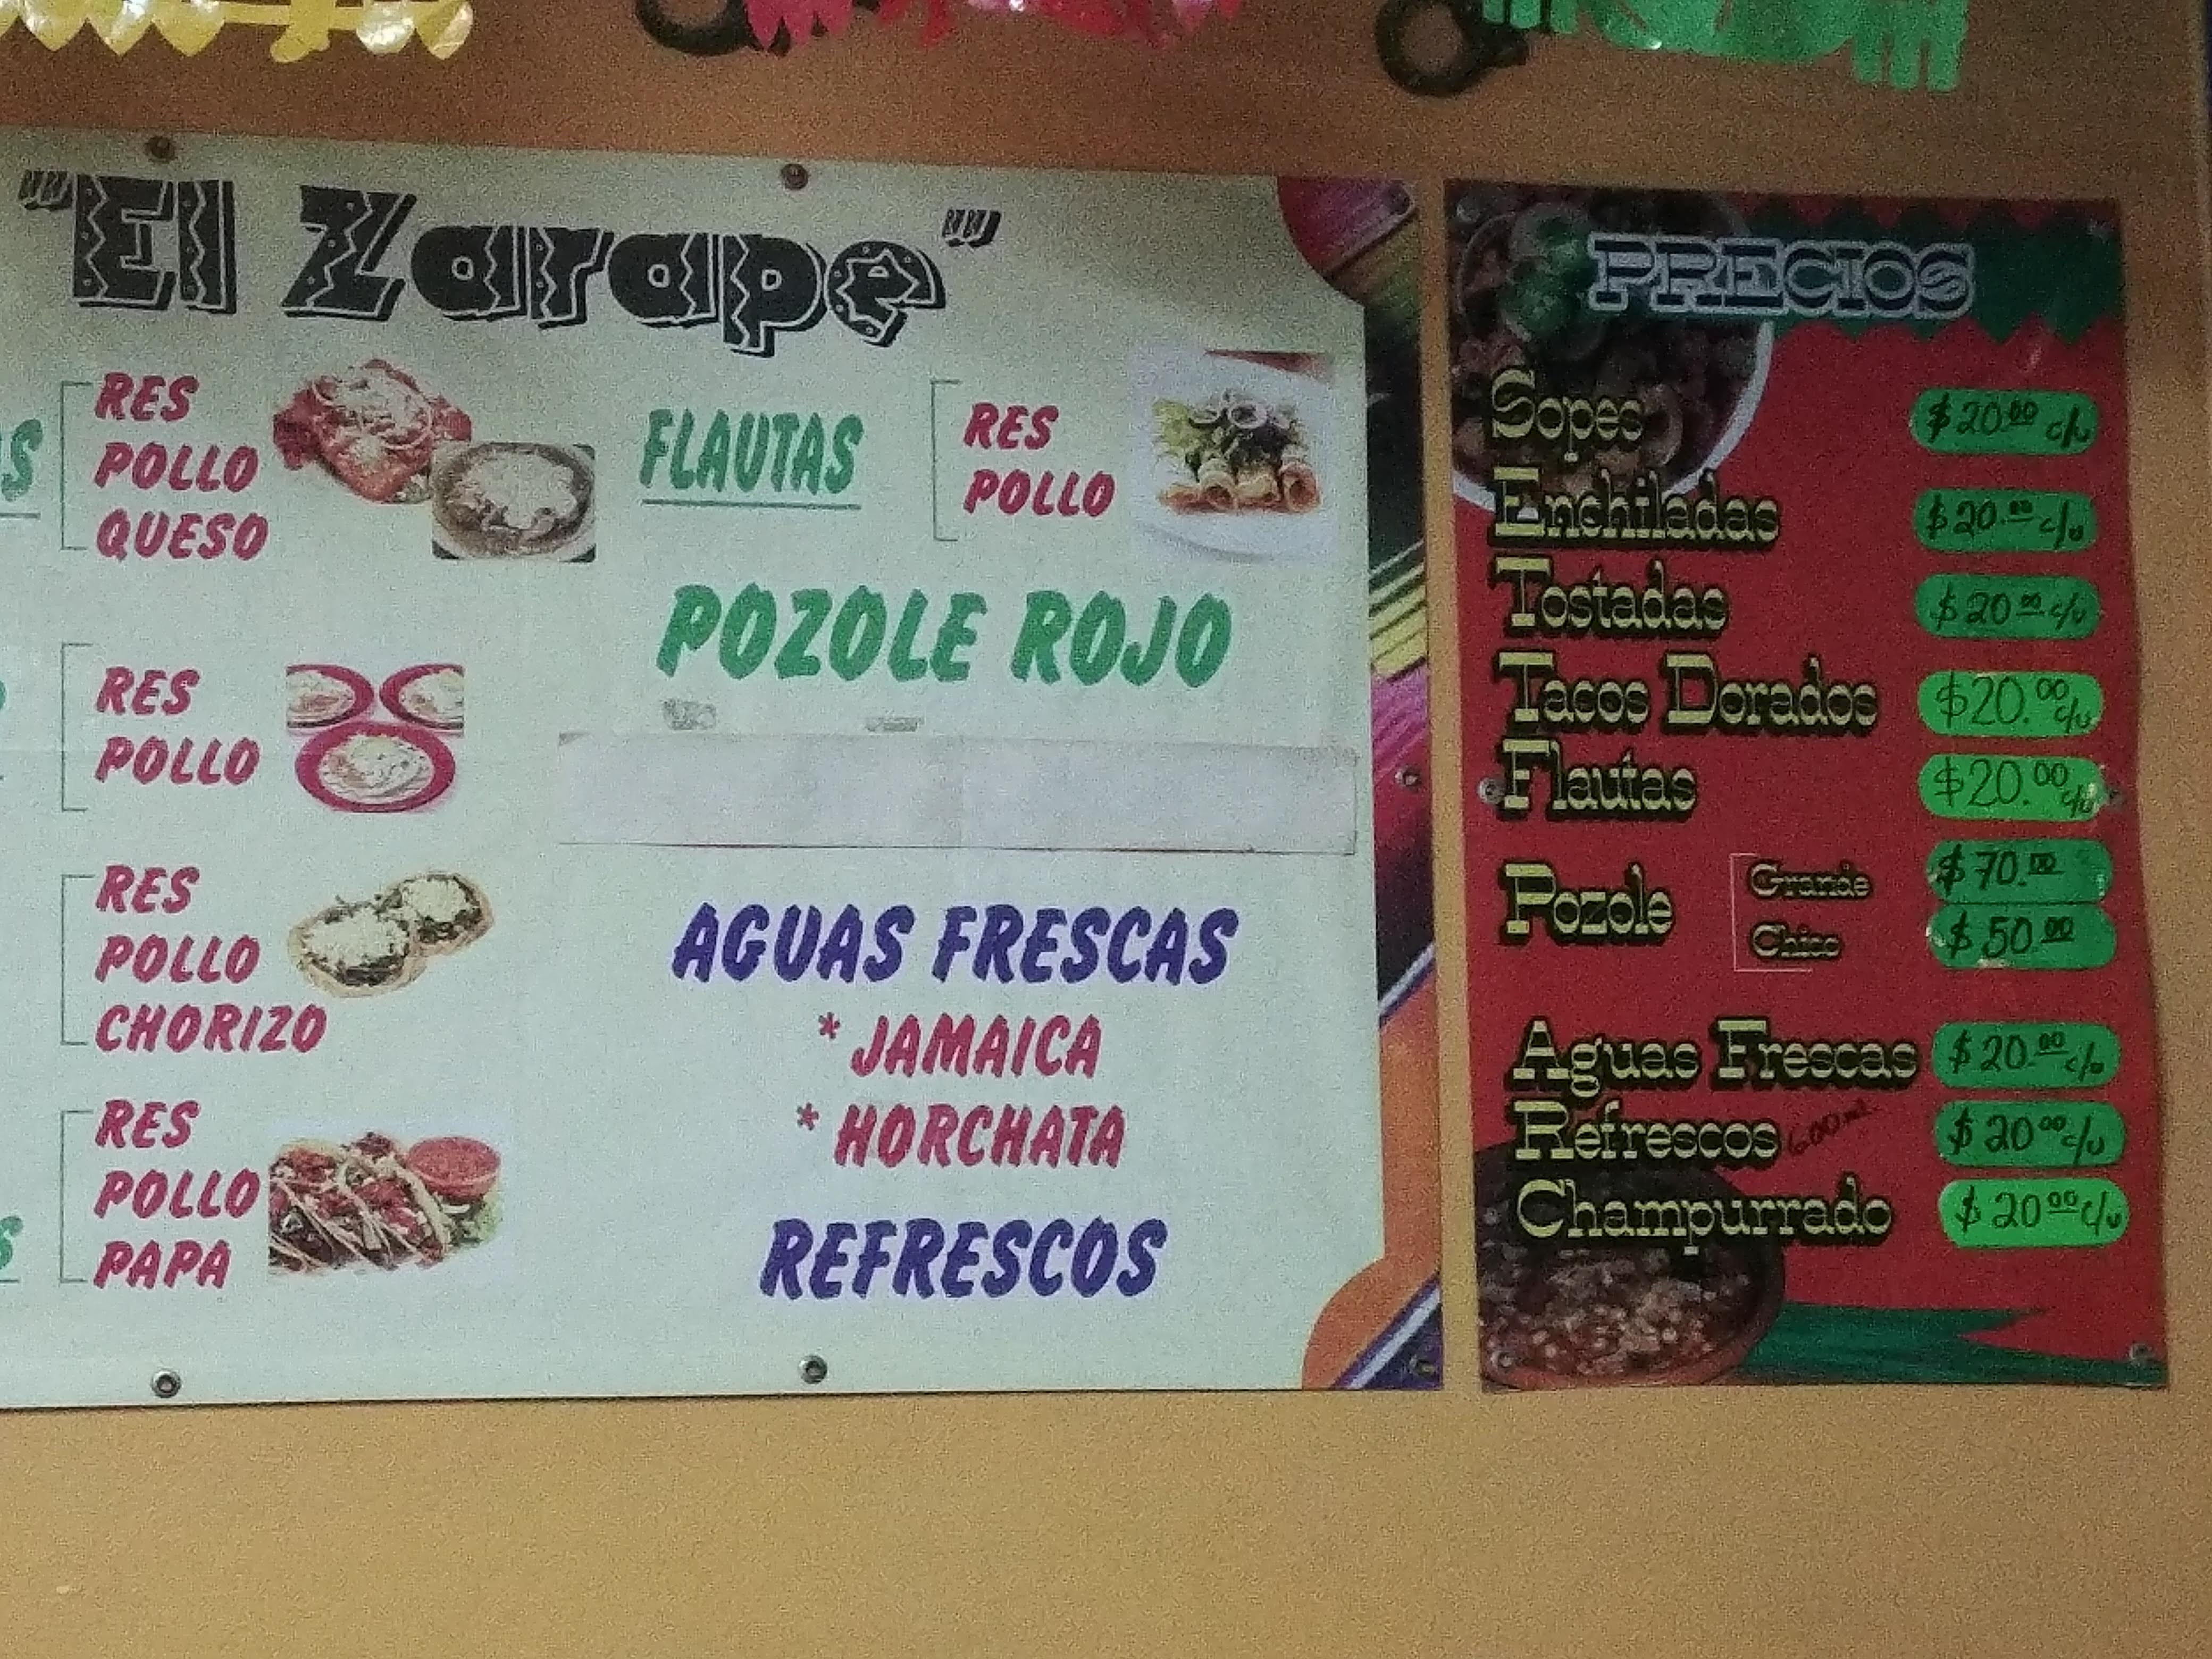 "El Zarape"
S
RES
POLLO
QUESO
RES
POLLO
RES
POLLO
CHORIZO
S
RES
POLLO
PAPA
FLAUTAS
RES
POLLO
POZOLE ROJO
AGUAS FRESCAS
* JAMAICA
* HORCHATA
REFRESCOS
PRECIOS
Sopes $20.00 c/u
Enchiladas $20.00 c/u
Tostadas $20.00 c/u
Tacos Dorados $20.00 c/u
Flautas $20.00 c/u
Pozole Grande $70.00
Chico $50.00
Aguas Frescas $20.00 c/u
Refrescos 600 ml $20.00 c/u
Champurrado $20.00 c/u